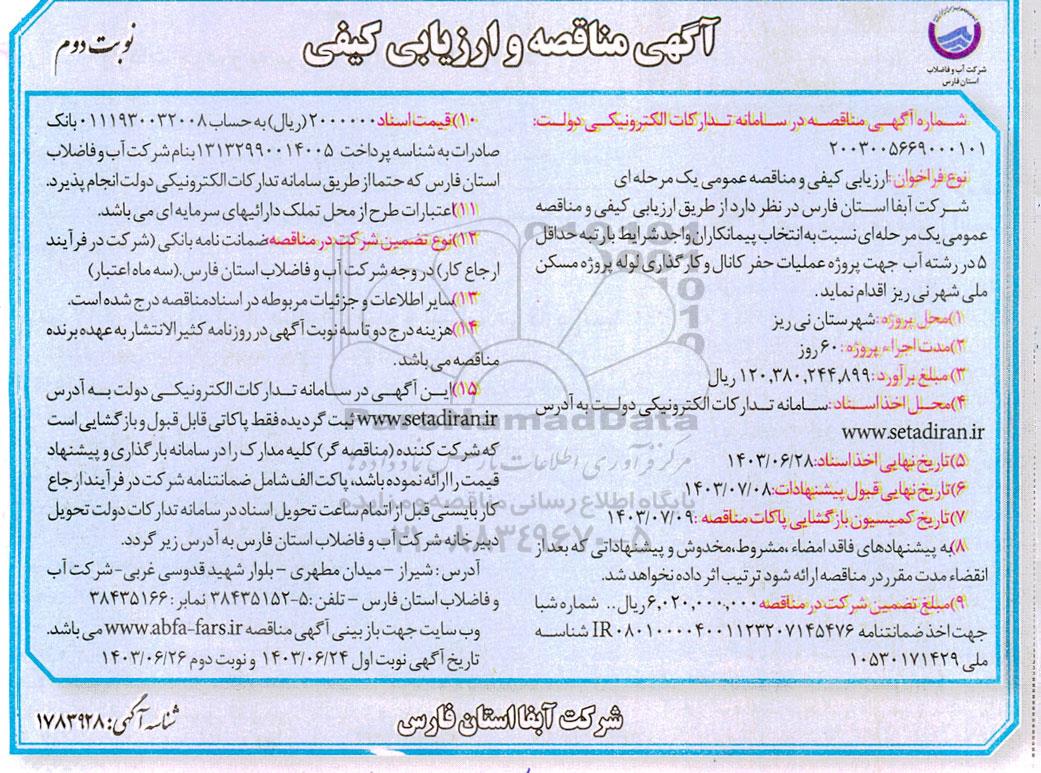 آگهی مناقصه و ارزیابی کیفی
نوبت دوم
شرکت آب و فاضلاب
استان فارس
شماره آگهی مناقصه در سامانه تدارکات الکترونیکی دولت:
۲۰۰۳۰۰۵۶۶۹۰۰۰۱۰۱
نوع فراخوان: ارزیابی کیفی و مناقصه عمومی یک مرحله ای
شرکت آبفا استان فارس در نظر دارد از طریق ارزیابی کیفی و مناقصه
عمومی یک مرحله ای نسبت به انتخاب پیمانکاران واجد شرایط با رتبه حداقل
۵ در رشته آب جهت پروژه عملیات حفر کانال و کارگذاری لوله پروژه مسکن
ملی شهر نی ریز اقدام نماید.
۱)محل پروژه: شهرستان نی ریز
۲)مدت اجراء پروژه: ۶۰ روز
۳) مبلغ برآورد: ۱۲۰,۳۸۰,۲۴۴,۸۹۹ ریال
۴) محل اخذ اسناد: سامانه تدارکات الکترونیکی دولت به آدرس
www.setadiran.ir
۵)تاریخ نهایی اخذ اسناد: ۱۴۰۳/۰۶/۲۸
۶)تاریخ نهایی قبول پیشنهادات: ۱۴۰۳/۰۷/۰۸
۷)تاریخ کمیسیون بازگشایی پاکات مناقصه: ۱۴۰۳/۰۷/۰۹
۸)به پیشنهادهای فاقد امضاء ،مشروط،مخدوش و پیشنهاداتی که بعد از
انقضاء مدت مقرر در مناقصه ارائه شود ترتیب اثر داده نخواهد شد.
۹)مبلغ تضمین شرکت در مناقصه ۶,۰۲۰,۰۰۰,۰۰۰ ریال.. شماره شبا
جهت اخذ ضمانتنامه IR۰۸۰۱۰۰۰۰۴۰۰۱۱۲۳۲۰۷۱۴۵۴۷۶ شناسه
ملی ۱۰۵۳۰۱۷۱۴۲۹
۱۰)قیمت اسناد ۲۰۰۰۰۰۰(ریال) به حساب ۰۱۱۱۹۳۰۰۳۲۰۰۸ بانک
صادرات به شناسه پرداخت ۱۳۱۳۲۹۹۰۰۱۴۰۰۵ بنام شرکت آب و فاضلاب
استان فارس که حتما از طریق سامانه تدارکات الکترونیکی دولت انجام پذیرد.
۱۱)اعتبارات طرح از محل تملک دارائیهای سرمایه ای می باشد.
۱۲)نوع تضمین شرکت در مناقصه ضمانت نامه بانکی (شرکت در فرآیند
ارجاع کار) در وجه شرکت آب و فاضلاب استان فارس.(سه ماه اعتبار)
۱۳)سایر اطلاعات و جزئیات مربوطه در اسنادمناقصه درج شده است.
۱۴)هزینه درج دو تا سه نوبت آگهی در روزنامه کثیرالانتشار به عهده برنده
مناقصه می باشد.
۱۵)این آگهی در سامانه تدارکات الکترونیکی دولت به آدرس
www.setadiran.ir ثبت گردیده فقط پاکاتی قابل قبول و بازگشایی است
که شرکت کننده (مناقصه گر) کلیه مدارک را در سامانه بارگذاری و پیشنهاد
قیمت را ارائه نموده باشد، پاکت الف شامل ضمانتنامه شرکت در فرآیند ارجاع
کار بایستی قبل از اتمام ساعت تحویل اسناد در سامانه تدارکات دولت تحویل
دبیرخانه شرکت آب و فاضلاب استان فارس به آدرس زیر گردد.
آدرس: شیراز – میدان مطهری – بلوار شهید قدوسی غربی-شرکت آب
و فاضلاب استان فارس – تلفن: ۵-۳۸۴۳۵۱۵۲ نمابر: ۳۸۴۳۵۱۶۶
وب سایت جهت بازبینی آگهی مناقصه www.abfa-fars.ir می باشد.
تاریخ آگهی نوبت اول ۱۴۰۳/۰۶/۲۴ و نوبت دوم ۱۴۰۳/۰۶/۲۶
مرکز فرآوری اطلاعات
پایگاه اطلاع رسانی مناقصه و مزایده
۰۲۱-۸۸۳۴۹۶۷۰-۵
شرکت آبفا استان فارس
شناسه آگهی: ۱۷۸۳۹۲۸